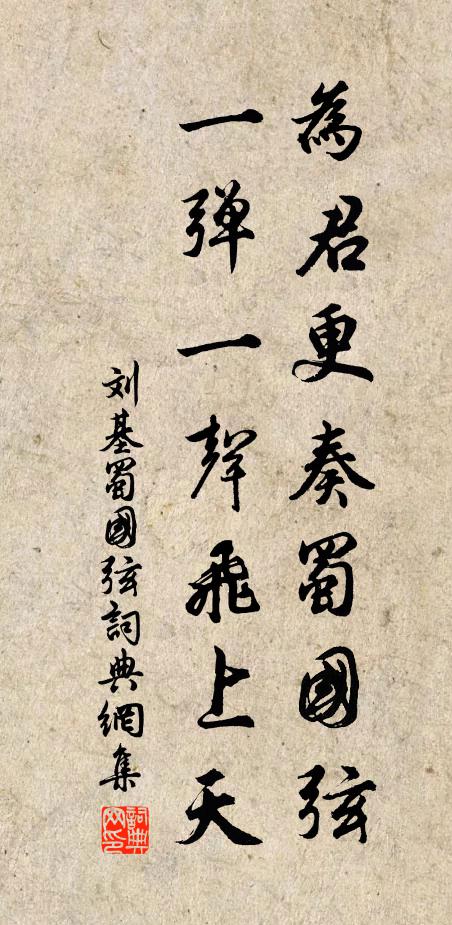 為君更奏蜀國弦
一弹一聲飛上天
刘基蜀國弦詞典網集
詞典
网印